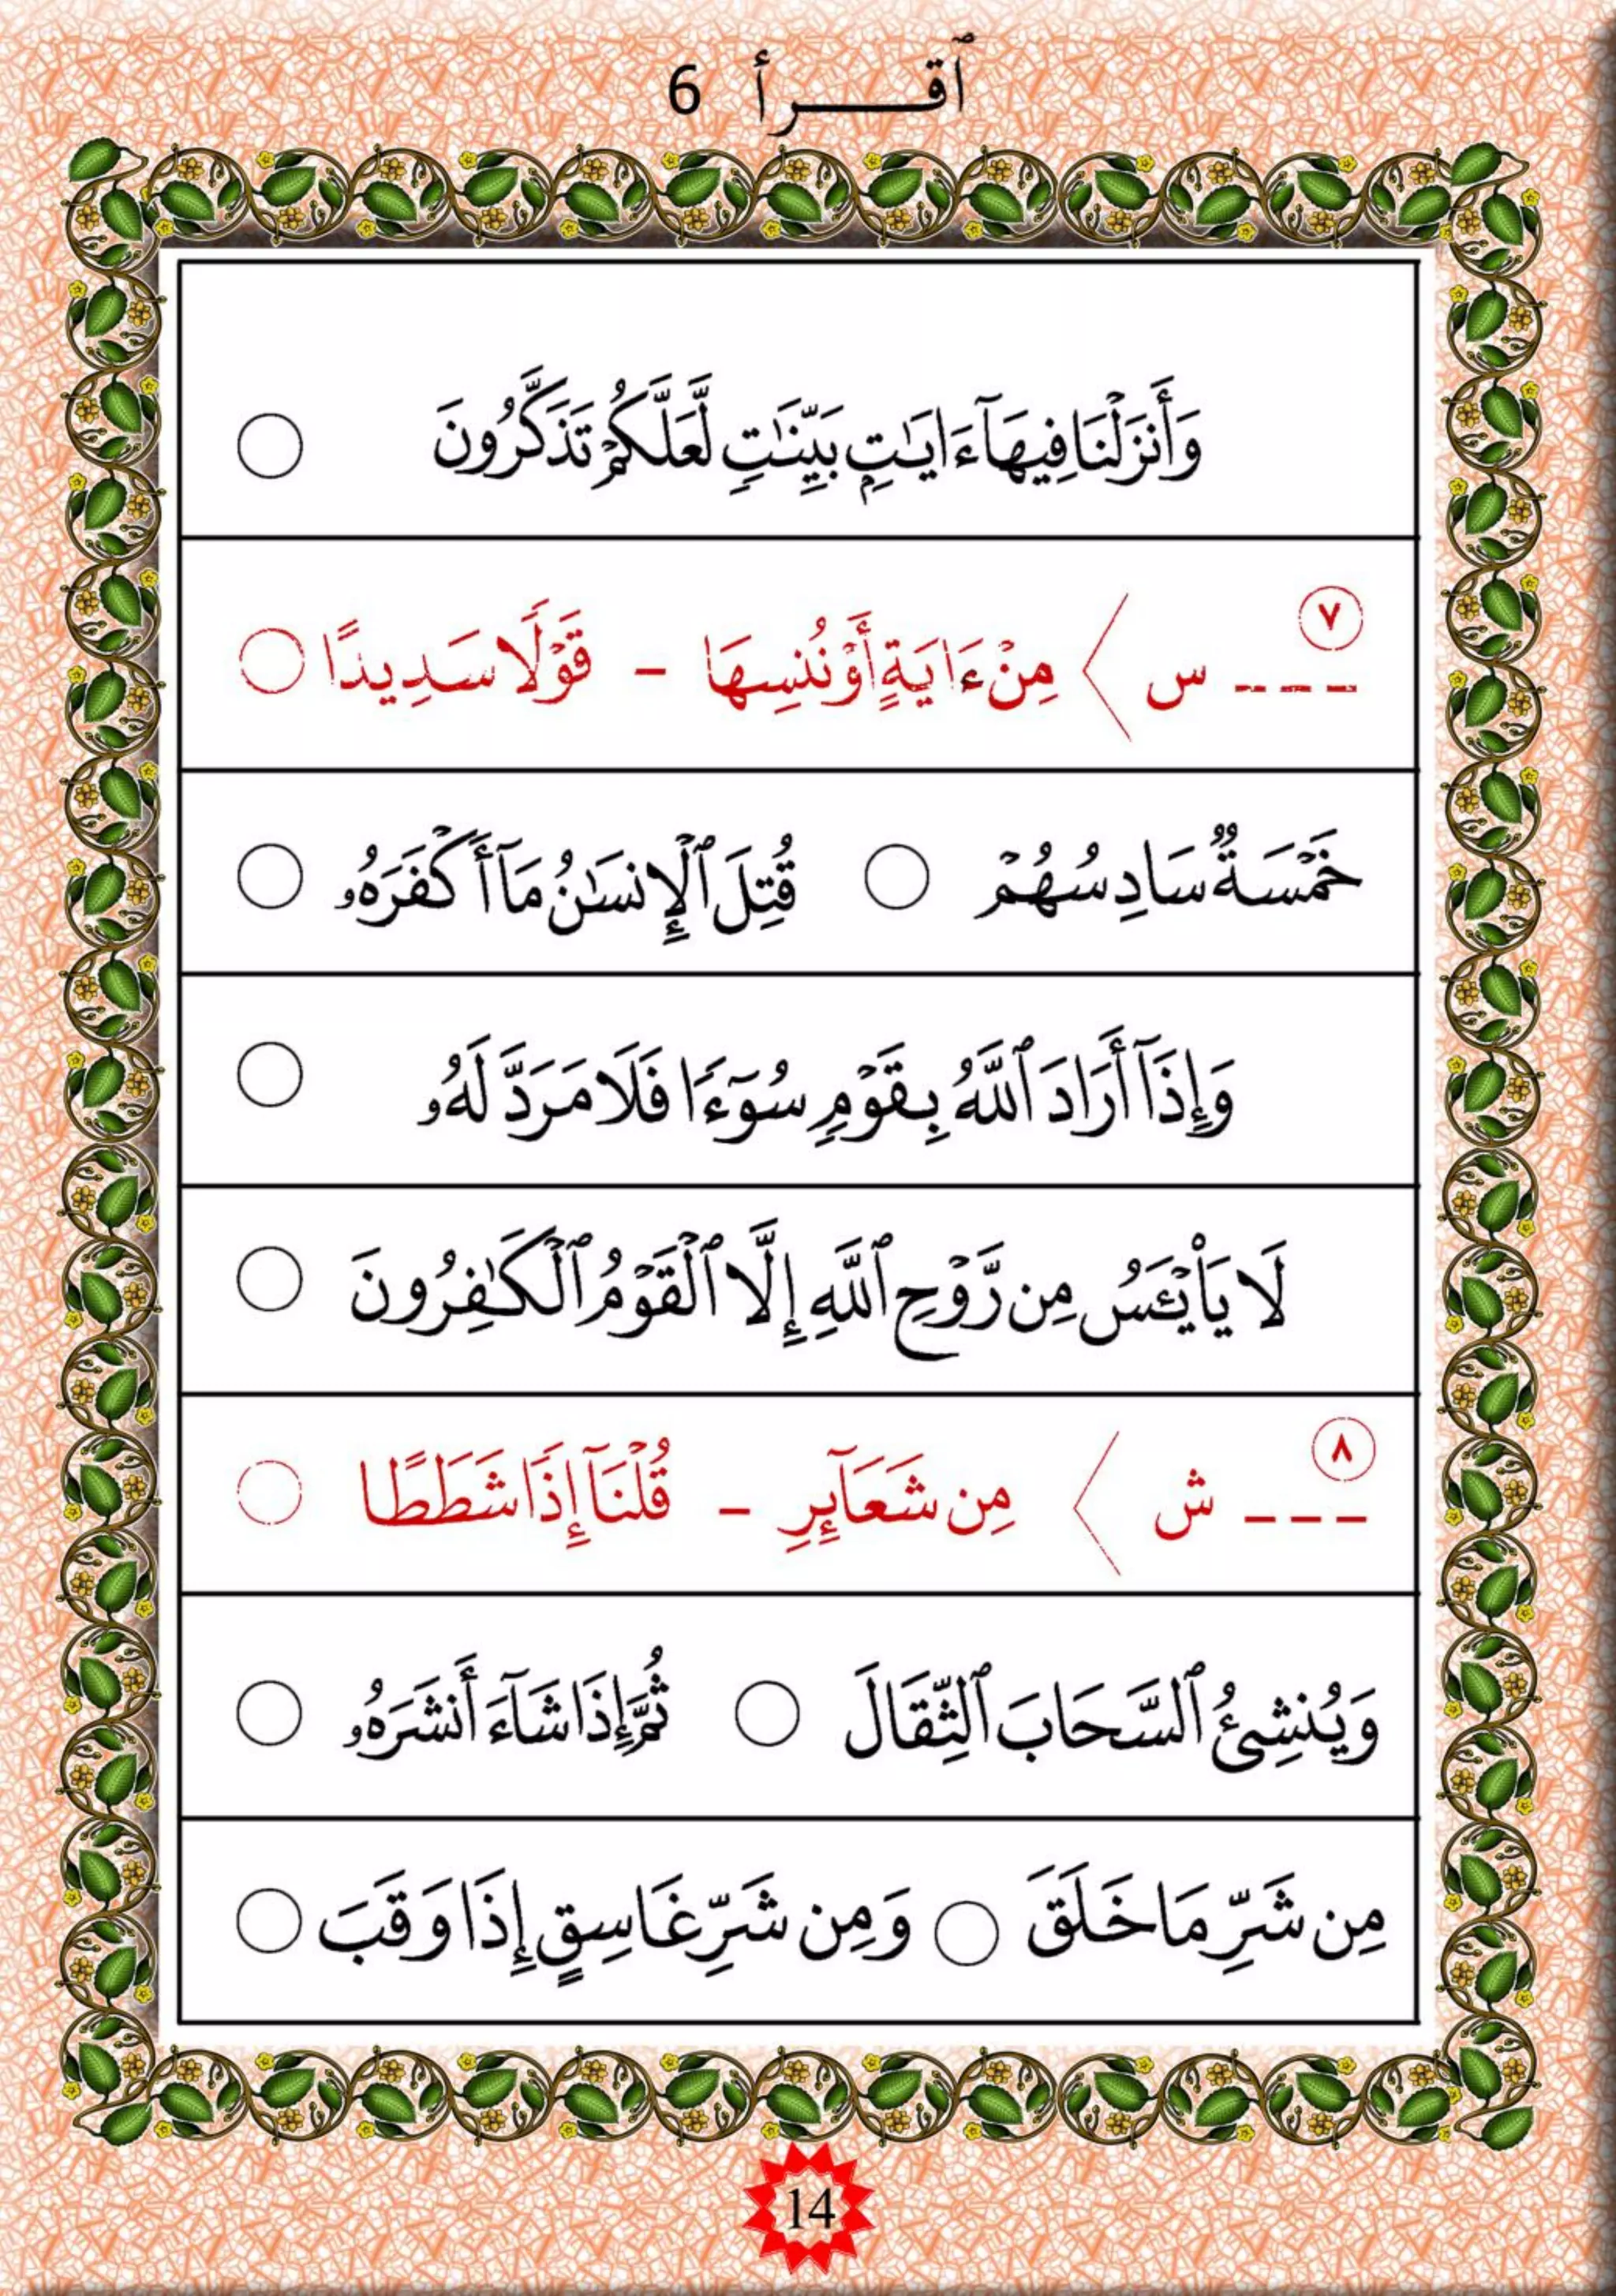 ٱقـــــرأ 6
وَأَنزَلْنَا فِيهَآ ءَايَـٰتٍۭ بَيِّنَـٰتٍ لَّعَلَّكُمْ تَذَكَّرُونَ ○
٧ --- س 〈 مِنْ ءَايَةٍ أَوْ نُنسِهَا – قَوْلًا سَدِيدًا ○
خَمْسَةٌ سَادِسُهُمْ ○ قُتِلَ ٱلْإِنسَـٰنُ مَآ أَكْفَرَهُۥ ○
وَإِذَآ أَرَادَ ٱللَّهُ بِقَوْمٍ سُوٓءًا فَلَا مَرَدَّ لَهُۥ ○
لَا يَا۟يْـَٔسُ مِن رَّوْحِ ٱللَّهِ إِلَّا ٱلْقَوْمُ ٱلْكَـٰفِرُونَ ○
٨ --- ش 〈 مِن شَعَآئِرِ – قُلْنَآ إِذًا شَطَطًا ○
وَيُنشِئُ ٱلسَّحَابَ ٱلثِّقَالَ ○ ثُمَّ إِذَا شَآءَ أَنشَرَهُۥ ○
مِن شَرِّ مَا خَلَقَ ○ وَمِن شَرِّ غَاسِقٍ إِذَا وَقَبَ ○
14